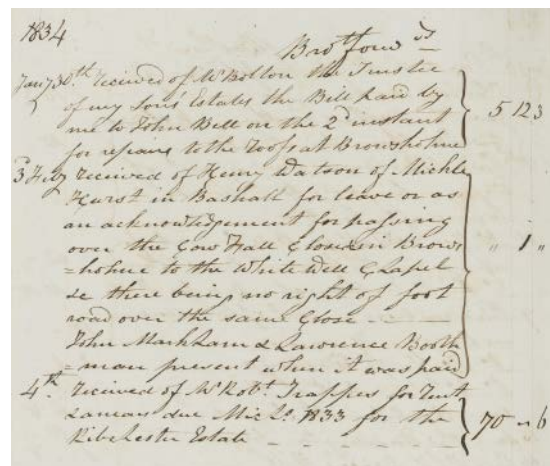 1834
Brot ford
Jany 30th. received of Mr Bolton the Trustee
of my Son's Estates the Bill paid by
me to John Bell on the 2d instant 5 12 3
for repairs to the roofs at Browsholme
3d Feby received of Henry Watson of Michle
Hurst in Bashall for leave or as
an acknowledgement for passing
over the Cow Hall Close in Brows " 1 "
=holme to the White Well Chapel
&c there being no right of foot
road over the same Close
John Markham & Lawrence Booth
=man present when it was paid
4th. received of Mr Robt. Trappes for rent
& arrears due Mics 1833 for the 70 " 6
Ribchester Estate